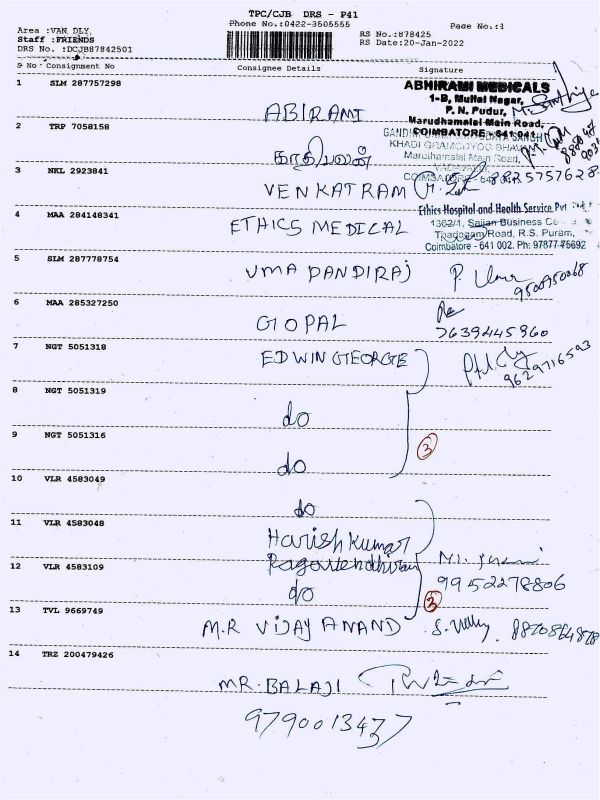 TPC/CJB DRS - P41
Phone No.:0422-3505555
Page No.:1
Area :VAN DLY,
Staff :FRIENDS
DRS No. :DCJB87842501
RS No.:878425
RS Date:20-Jan-2022
S No Consignment No Consignee Details Signature
1 SLM 287757298
ABIRAMI
ABHIRAMI MEDICALS
1-B, Mullai Nagar,
P. N. Pudur,
Marudhamalai Main Road,
COIMBATORE - 641 041
2 TRP 7058158
KHADI GRAMODYOG BHAVAN
Marudhamalai Main Road,
3 NKL 2923841
VENKATRAM
4 MAA 284148341
ETHICS MEDICAL
Ethics Hospital and Health Service Pvt
1362/1, Sajjan Business
Thadagam Road, R.S. Puram,
Coimbatore - 641 002. Ph: 97877 75692
5 SLM 287778754
UMA PANDIRAJ
9500950068
6 MAA 285327250
GOPAL
7639445960
7 NGT 5051318
EDWIN GEORGE
9629716593
8 NGT 5051319
do
9 NGT 5051316
do
3
10 VLR 4583049
do
11 VLR 4583048
Harish Kumar
12 VLR 4583109
do
9952278806
3
13 TVL 9669749
M.R VIJAY ANAND
14 TRZ 200479426
MR. BALAJI